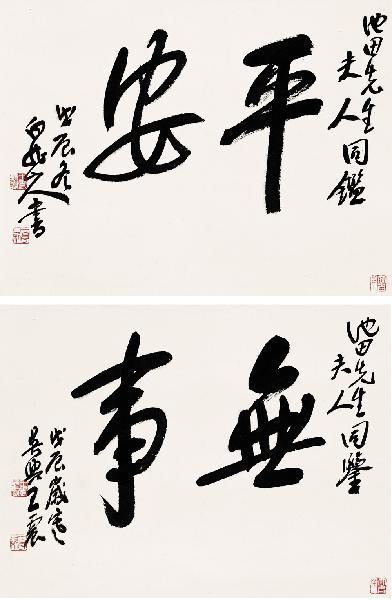 池田先生
夫人同鑑
平安
戊辰冬
白龍山人書
池田先生
夫人同鑒
無事
戊辰歲寒
吳興王震